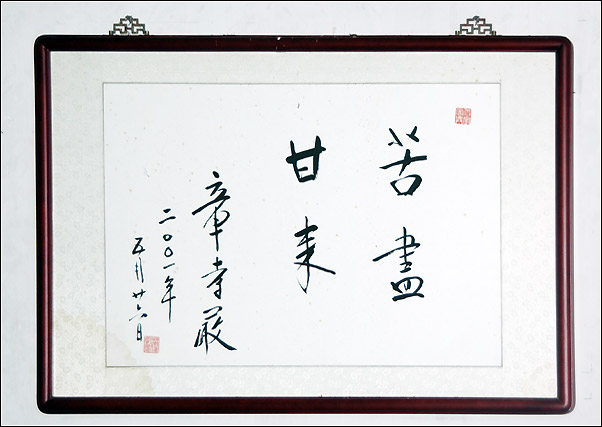 苦盡
甘来
章孝嚴
二〇〇一年
五月廿六日